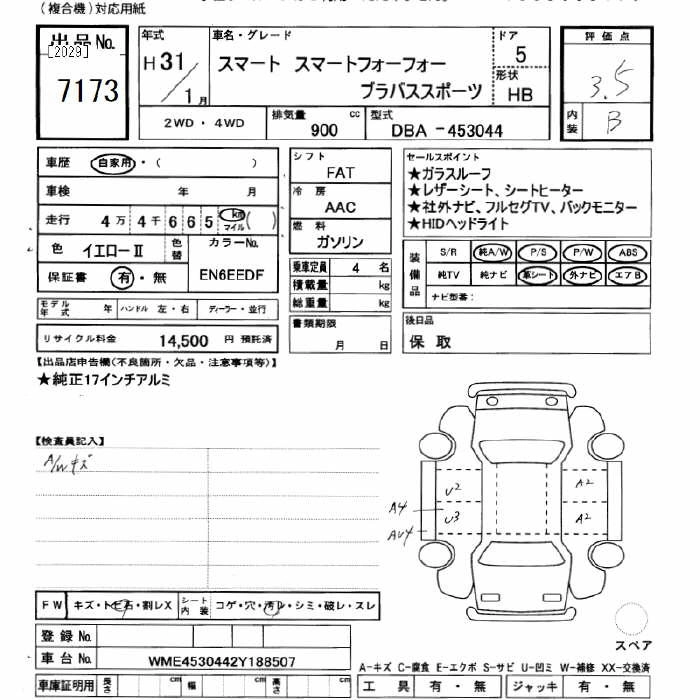 (複合機)対応用紙
出品No.
[2029]
7173
年式
H31/1月
車名・グレード
スマート スマートフォーフォー
ブラバススポーツ
ドア
5
形状
HB
評価点
3.5
内装
B
2WD・4WD
排気量
900 cc
型式
DBA -453044
車歴 自家用・( )
車検 年 月
走行 4万4千665 km マイル ( )
色 イエローⅡ 色替
カラーNo.
EN6EEDF
保証書 有・無
モデル年式 年 ハンドル 左・右 ディーラー・並行
リサイクル料金 14,500 円 預託済
シフト
FAT
冷房
AAC
燃料
ガソリン
乗車定員 4 名
積載量 kg
総重量 kg
書類期限
月 日
セールスポイント
★ガラスルーフ
★レザーシート、シートヒーター
★社外ナビ、フルセグTV、バックモニター
★HIDヘッドライト
装備品
S/R 純A/W P/S P/W ABS
純TV 純ナビ 革シート 外ナビ エアB
ナビ型番:
後日品
保 取
【出品店申告欄(不良箇所・欠品・注意事項等)】
★純正17インチアルミ
【検査員記入】
A/Wキズ
U2
A2
A4
U3
A2
AU4
FW キズ・トビ石・割レX
シート内装 コゲ・穴・汚レ・シミ・破レ・スレ
登録No.
車台No. WME4530442Y188507
車庫証明用 長さ cm 幅 cm 高さ cm
スペア
A-キズ C-腐食 E-エクボ S-サビ U-凹ミ W-補修 XX-交換済
工具 有・無 ジャッキ 有・無